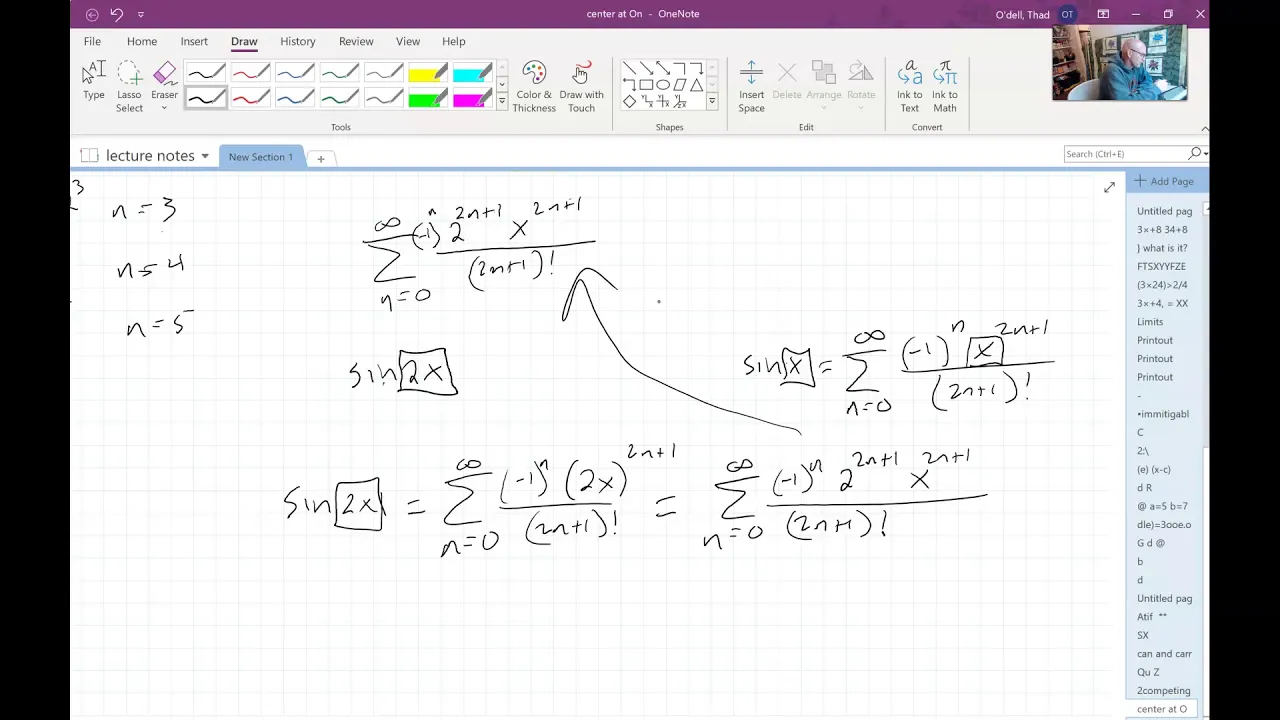 center at On - OneNote
O'dell, Thad OT
File Home Insert Draw History Review View Help
Type Lasso Select Eraser Color & Thickness Draw with Touch Insert Space Delete Arrange Rotate Ink to Text Ink to Math
Tools Shapes Edit Convert
lecture notes New Section 1 +
Search (Ctrl+E)
Add Page
Untitled pag
3×+8 34+8
} what is it?
FTSXYYFZE
(3×24)>2/4
3×+4, = XX
Limits
Printout
Printout
Printout
-
•immitigabl
C
2:\
(e) (x-c)
d R
@ a=5 b=7
dle)=3ooe.o
G d @
b
d
Untitled pag
Atif **
SX
can and carr
Qu Z
2competing
center at O
n = 3
n = 4
n = 5
∞ ∑ n=0 (-1)^n 2^(2n+1) x^(2n+1) / (2n+1)!
sin 2x
sin x = ∞ ∑ n=0 (-1)^n x^(2n+1) / (2n+1)!
sin 2x = ∞ ∑ n=0 (-1)^n (2x)^(2n+1) / (2n+1)! = ∞ ∑ n=0 (-1)^n 2^(2n+1) x^(2n+1) / (2n+1)!